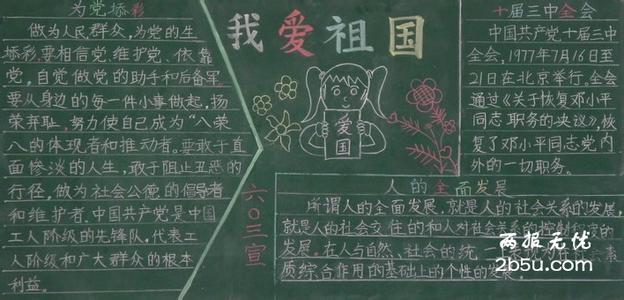 为党添彩
做为人民群众，为党的生
添彩要相信党、维护党、依靠
党，自觉做党的助手和后备军
要从身边的每一件小事做起，扬
荣弃耻，努力使自己成为“八荣
八的体现者和推动者。要敢于直
面惨淡的人生，敢于阻止丑恶的
行径，做为社会公德的倡导者
和维护者，中国共产党是中国
工人阶级的先锋队，代表工
人阶级和广大群众的根本
利益。
我爱祖国
爱国
六〇三宣
十届三中全会
中国共产党十届三中
全会，1977年7月16日至
21日在北京举行，全会
通过《关于恢复邓小平
同志职务的决议》，恢
复了邓小平同志党内
外的一切职务。
人的全面发展
所谓人的全面发展，就是人的社会关系的发展，
就是人的社会交往的和人对社会关系的控制
发展。在人与自然、社会的统一
质综合作用的基础上的个性的发展。
两报无忧
2b5u.com